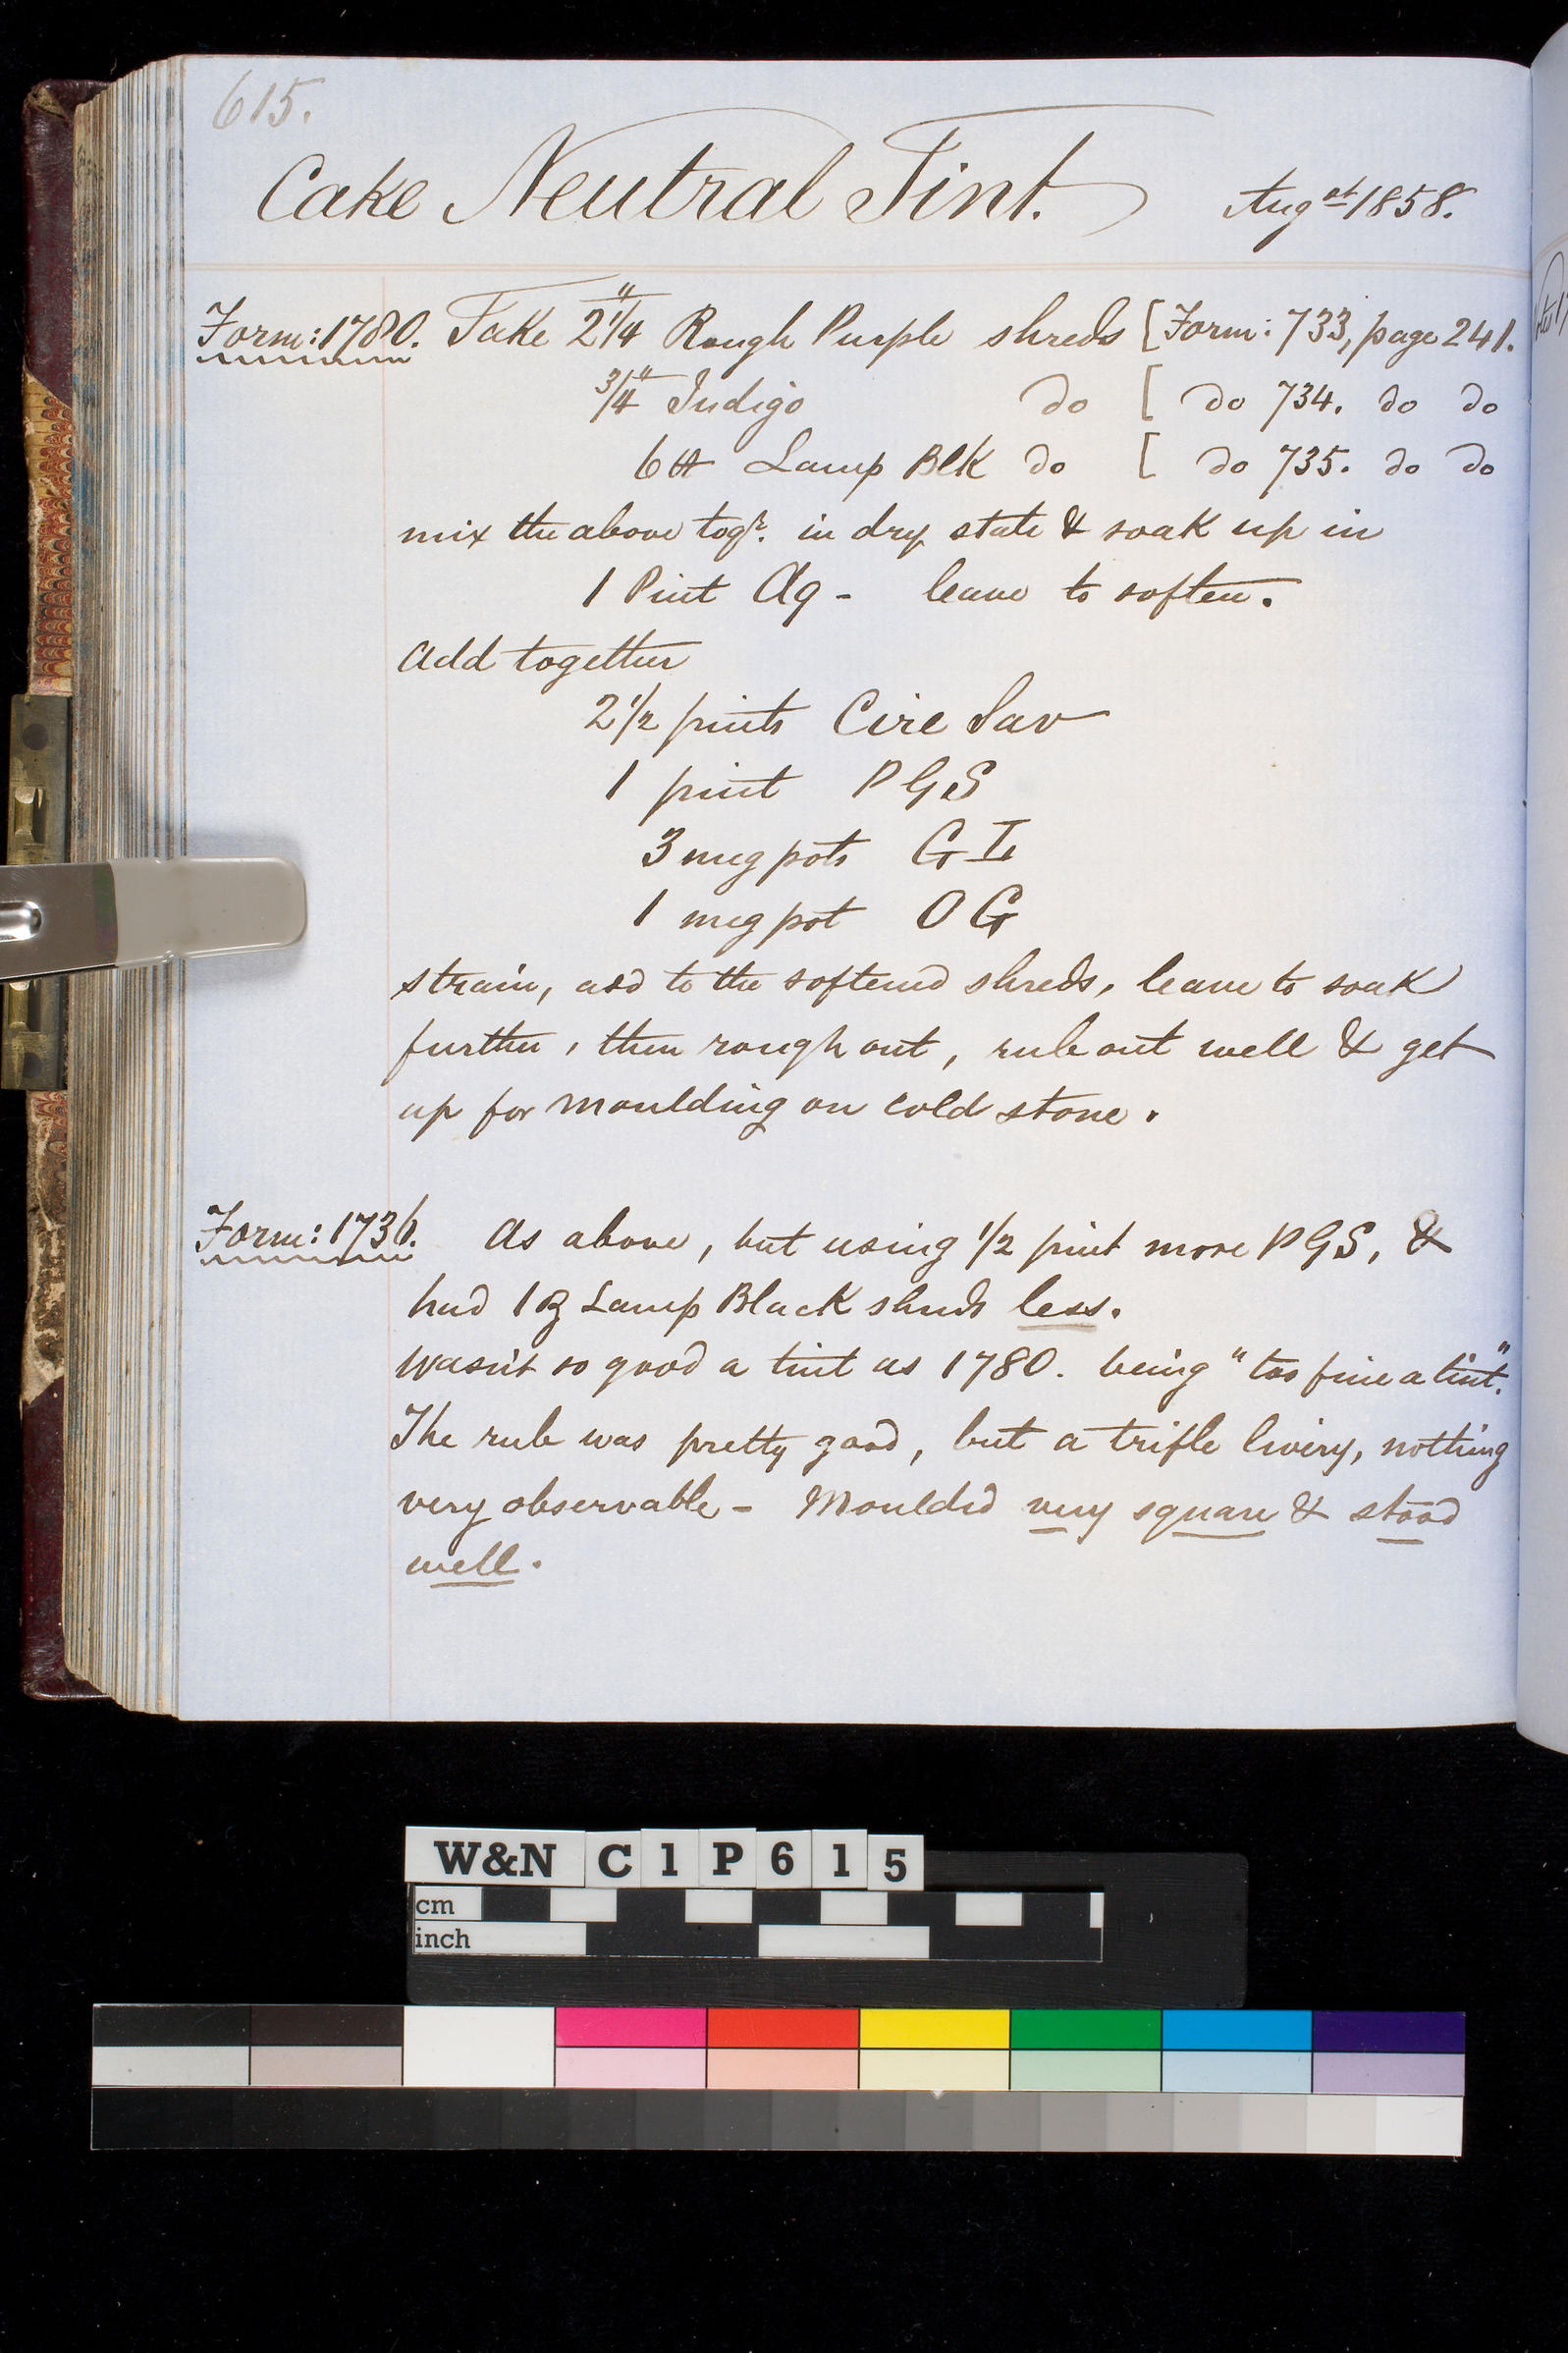 615.
Cake Neutral Tint. Augst 1858.
Form: 1780. Take 2 1/4 " Rough Purple shreds [Form: 733, page 241.
3/4 " Indigo do [ do 734. do do
6 ℔ Lamp Blk do [ do 735. do do
mix the above togr. in dry state & soak up in
1 Pint Aq - leave to soften.
Add together
2 1/2 pints Cire Sav
1 pint PGS
3 meg pots GI
1 meg pot OG
strain, add to the softened shreds, leave to soak
further, then rough out, rub out well & get
up for moulding on cold stone.
Form: 1736. As above, but using 1/2 pint more PGS, &
had 1 ℥ Lamp Black shreds less.
Wasn't so good a tint as 1780. being "too fine a tint".
The rub was pretty good, but a trifle livery, nothing
very observable - Moulded very square & stood
well.
W&N C1P615
cm
inch